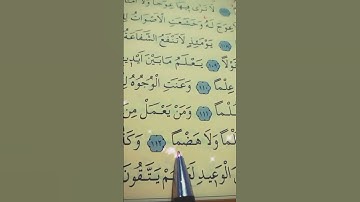 لَّا تَرَىٰ فِيهَا عِوَجًا وَلَا
عِوَجَ لَهُۥ وَخَشَعَتِ ٱلْأَصْوَاتُ
يَوْمَئِذٍ لَّا تَنفَعُ ٱلشَّفَٰعَةُ
قَوْلًا ١٠٩ يَعْلَمُ مَا بَيْنَ أَيْدِي
عِلْمًا ١١٠ وَعَنَتِ ٱلْوُجُوهُ
ظُلْمًا ١١١ وَمَن يَعْمَلْ مِنَ
ظُلْمًا وَلَا هَضْمًا ١١٢
ٱلْوَعِيدِ لَعَلَّهُمْ يَتَّقُونَ